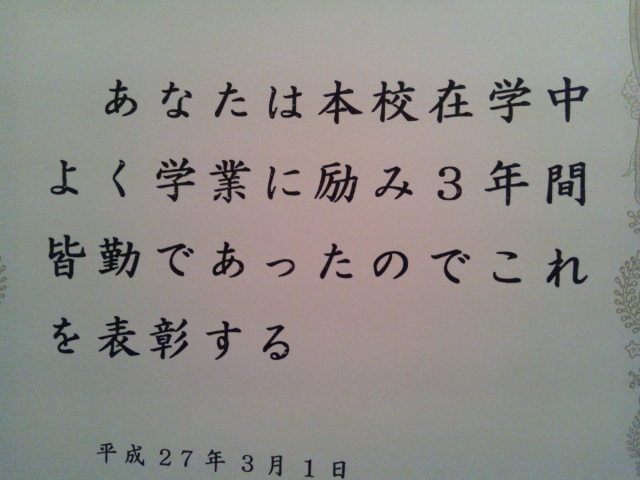 あなたは本校在学中
よく学業に励み3年間
皆勤であったのでこれ
を表彰する
平成27年3月1日